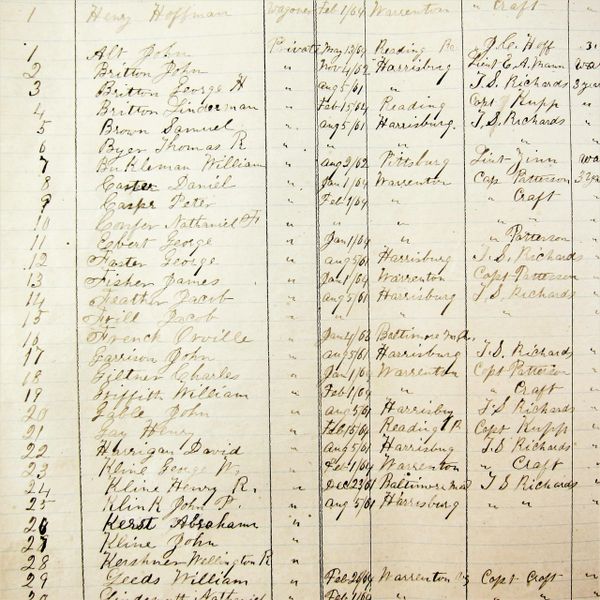 1 Henry Hoffman Wagoner Feb 1/64 Warrenton " Craft "
1 Alt John Private May 13/64 Reading Pa J. C. Hoff 3
2 Britton John " Nov 4/62 Harrisburg Lieut E. A. Mann War
3 Britton George H " Aug 5/61 " T. S. Richards 3 year
4 Britton Linderman " Feb 15/64 Reading Capt J Kupp "
5 Brown Samuel " Aug 5/61 Harrisburg. T. S. Richards "
6 Byer Thomas R. " " " "
7 Buckleman William " Aug 2/62 Pittsburg Lieut Zinn Wa
8 Carter Daniel " Jan 1/64 Warrenton Cap Patterson 3 ye
9 Casper Peter " Feb 1/64 " " Craft "
10 Confer Nathaniel F. " " " "
11 Egbert George " Jan 1/64 " " Patterson "
12 Foster George " Aug 5/61 Harrisburg T. S. Richards "
13 Fisher James " Jan 1/64 Warrenton Capt Patterson "
14 Feather Jacob " Aug 5/61 Harrisburg T. S Richards "
15 Frill Jacob " " " "
16 French Orville " Jan 4/62 Baltimore Md.
17 Garrison John " Aug 5/61 Harrisburg T. S. Richards "
18 Giltner Charles " Jan 1/64 Warrenton Capt Patterson "
19 Griffith William " Feb 1/64 " " Craft "
20 Gable John " Aug 5/61 Harrisbug T. S Richards "
21 Gay Henry " Feb 15/64 Reading P. Capt Kupp "
22 Harrigan David " Aug 5/61 Harrisburg T. S. Richards "
23 Kline George W. " Feb 1/64 Warrenton " Craft "
24 Kline Henry R. " Dec 23/61 Baltimore Md T S Richards "
25 Klink John P. " Aug 5/61 Harrisburg " " "
26 Kerst Abraham "
27 Kline John "
28 Kershner Wellington R "
29 Leeds William " Feb 26/64 Warrenton Capt Craft "
30 Nathaniel " Feb 1/64 " "